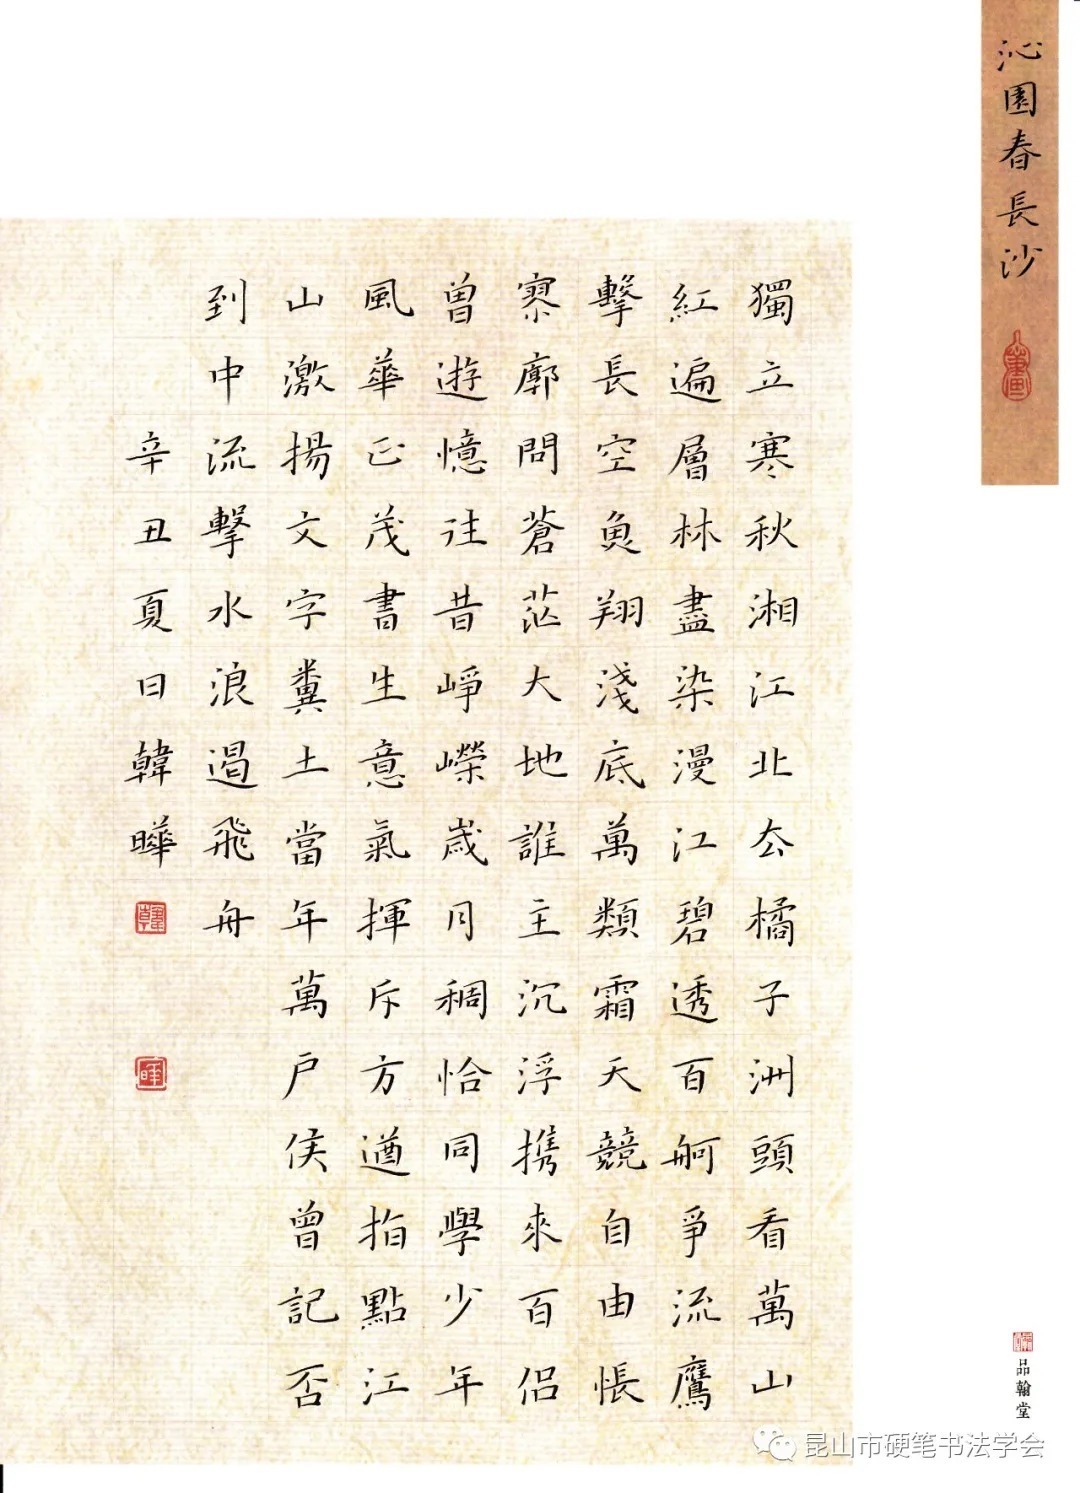 沁園春長沙
獨立寒秋湘江北去橘子洲頭看萬山
紅遍層林盡染漫江碧透百舸爭流鷹
擊長空魚翔淺底萬類霜天競自由悵
寥廓問蒼茫大地誰主沉浮攜來百侶
曾遊憶往昔崢嶸歲月稠恰同學少年
風華正茂書生意氣揮斥方遒指點江
山激揚文字糞土當年萬戶侯曾記否
到中流擊水浪遏飛舟
辛丑夏日韓曄
品翰堂
昆山市硬笔书法学会